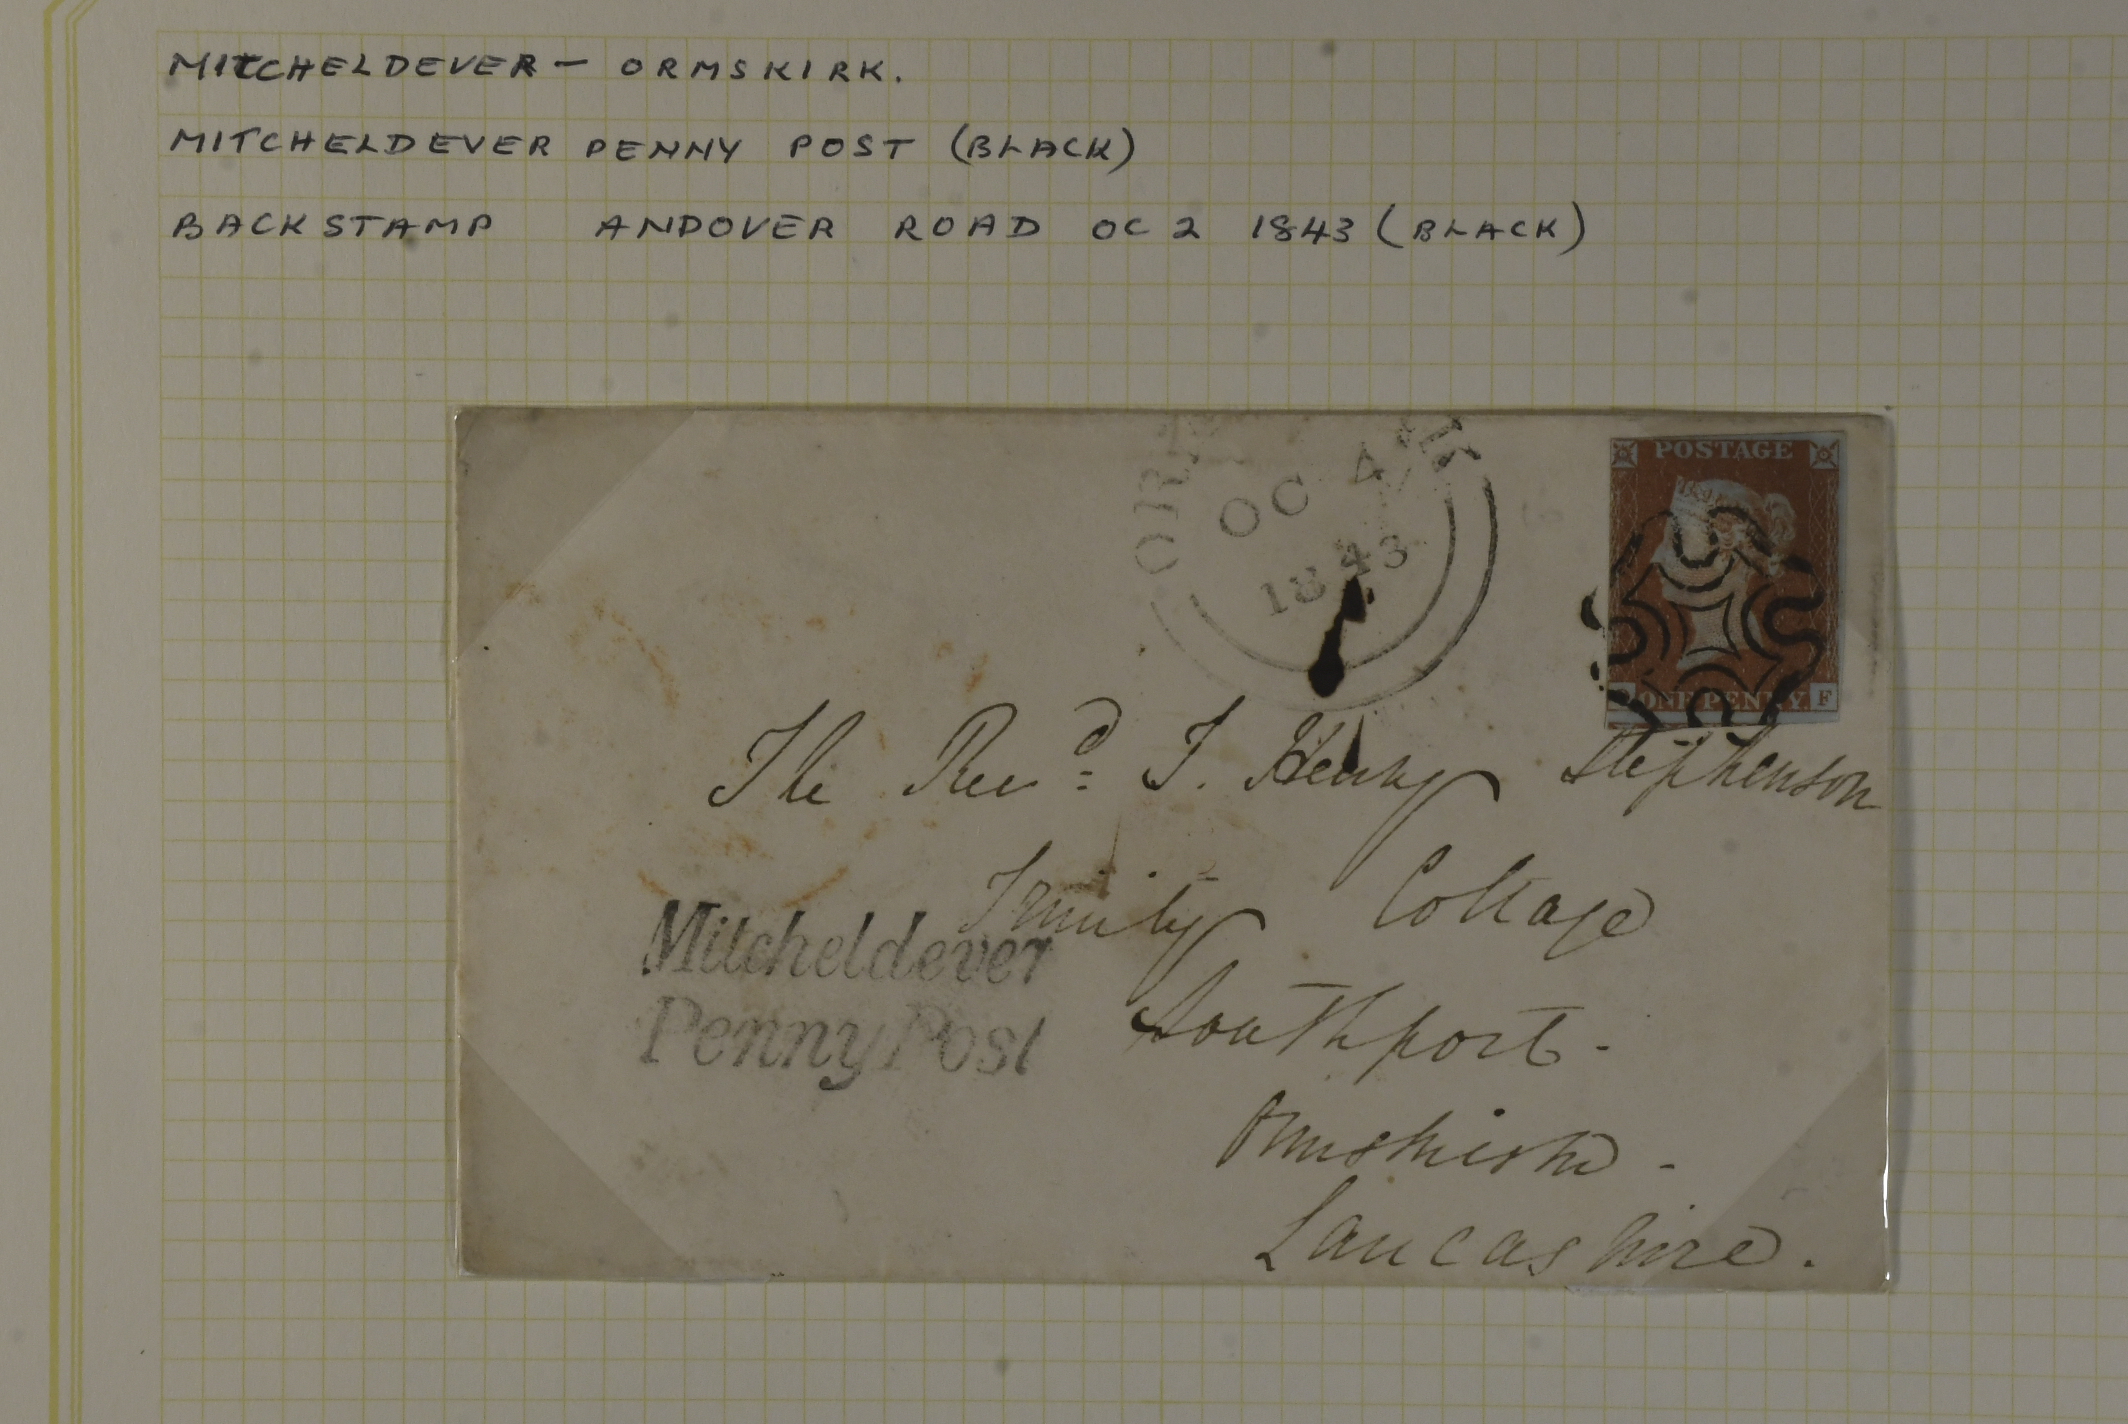 MITCHELDEVER - ORMSKIRK.
MITCHELDEVER PENNY POST (BLACK)
BACKSTAMP ANDOVER ROAD OC 2 1843 (BLACK)
OC 4
1843
POSTAGE
ONE PENNY
F
The Revd: J. Henry Stephenson
Trinity Cottage
Mitcheldever
Penny Post
Southport -
Ormskirk -
Lancashire.